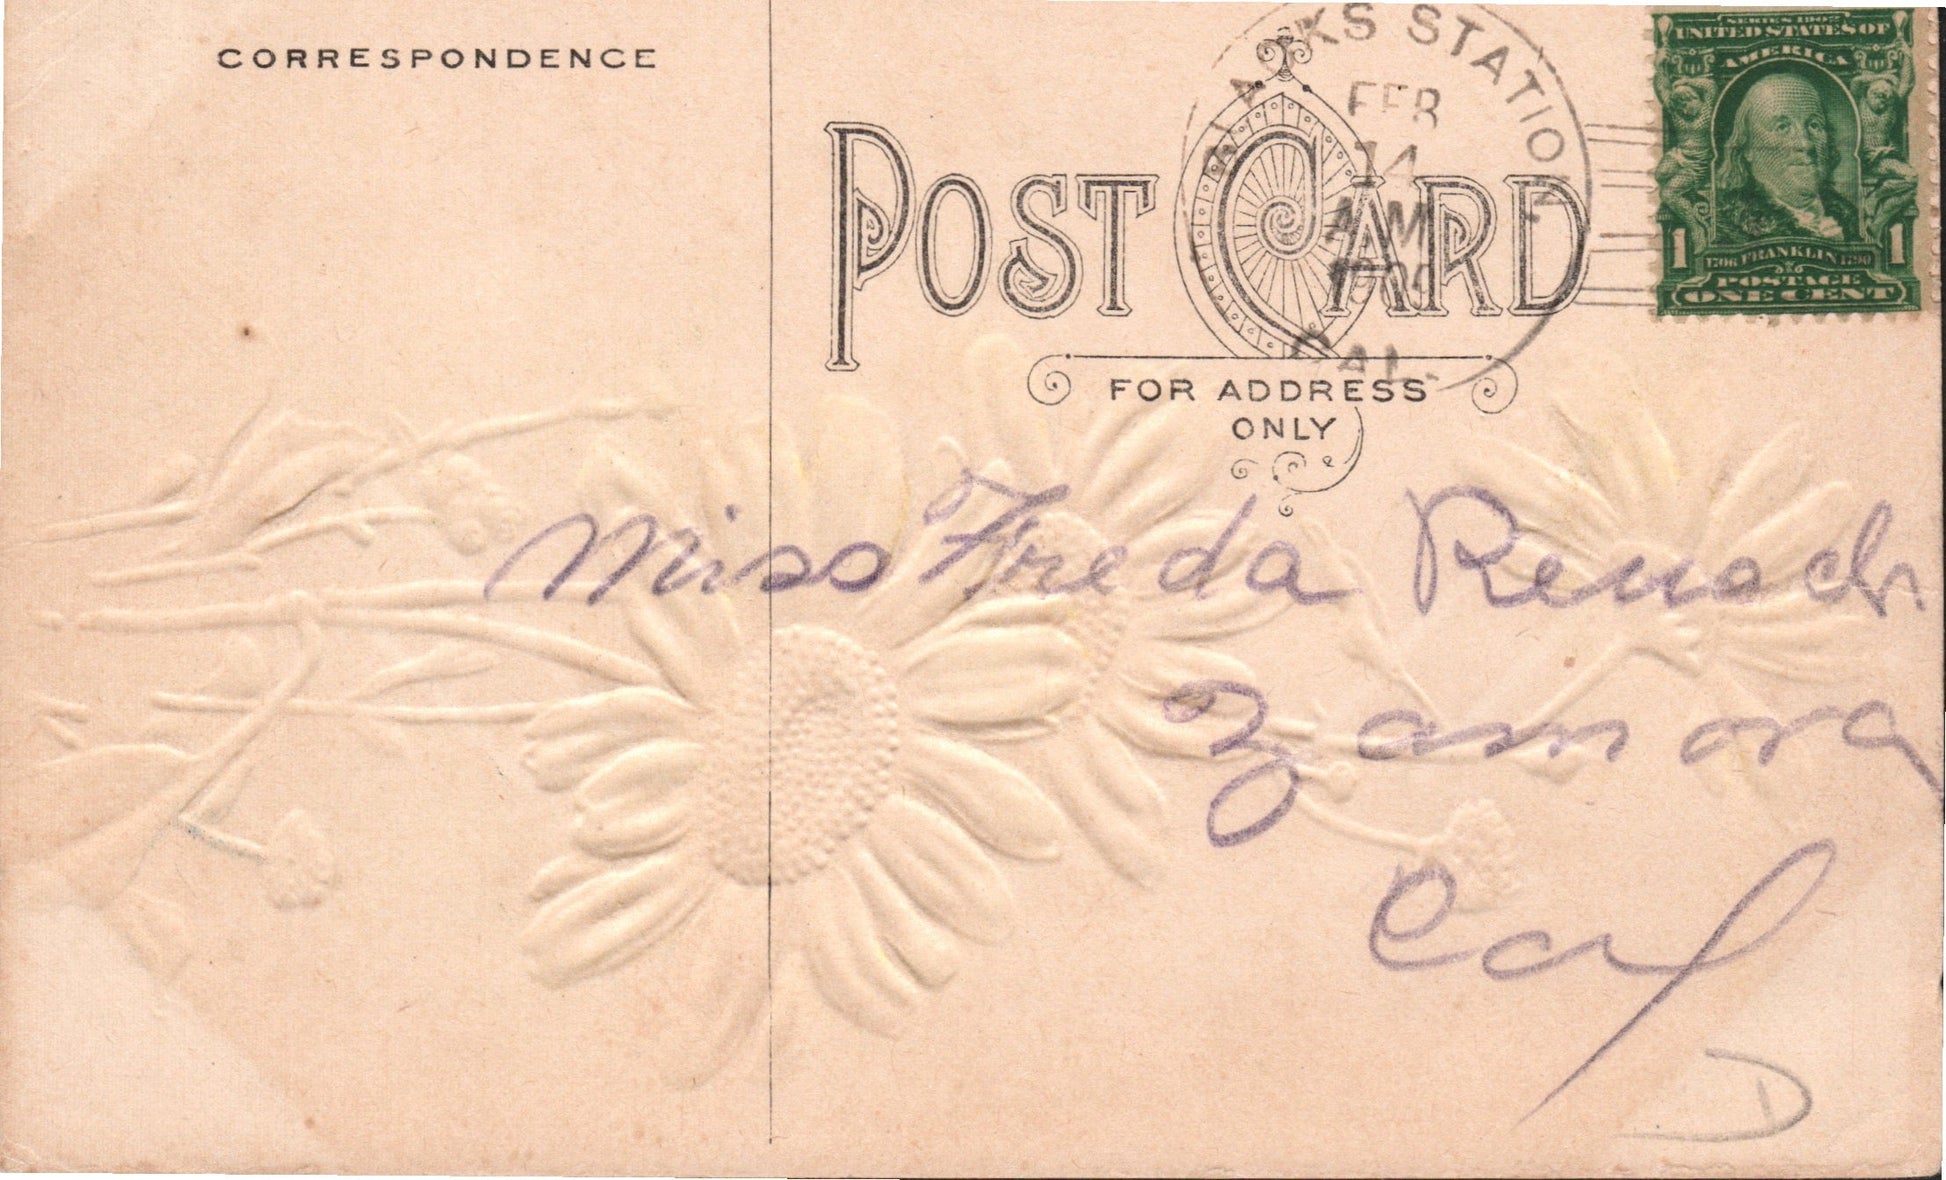 CORRESPONDENCE
BLACKS STATION
FEB
14
A.M
CAL.
SERIES 1902
UNITED STATES OF
AMERICA
1706 FRANKLIN 1790
1 1
POSTAGE
ONE CENT
POST CARD
FOR ADDRESS
ONLY
Miss Freda
Zamora
Cal
D